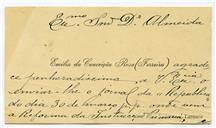 Ex.mo Snr. Dr. Almeida
Emilia da Conceição Rosa (Ferreira) agrade
ce penhoradissima a V. Ex.cia o
enviar-lhe o jornal da "Republica"
do dia 30 de março p. onde vem
a Reforma da Instrucção Primaria,